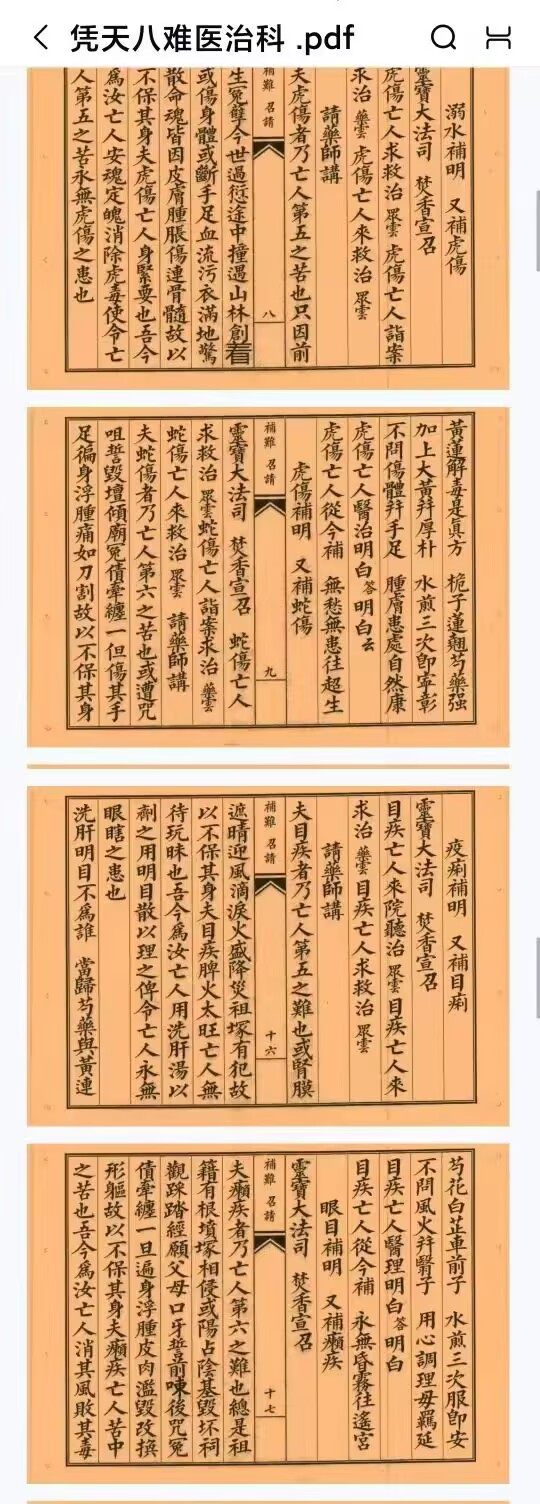 凭天八难医治科 .pdf
溺水補明　又補虎傷
靈寶大法司　焚香宣召
虎傷亡人求救治 眾雲 虎傷亡人詣案
求治 藥雲 虎傷亡人來救治 眾雲
請藥師講
夫虎傷者乃亡人第五之苦也只因前
補難 召請
八
生冤孽今世過愆途中撞遇山林創着
或傷身體或斷手足血流污衣滿地驚
散命魂皆因皮膚腫脹傷連骨髓故以
不保其身夫虎傷亡人身緊要也吾今
為汝亡人安魂定魄消除虎毒使令亡
人第五之苦永無虎傷之患也
黃蓮解毒是眞方　梔子蓮翹芍藥强
加上大黃幷厚朴　水煎三次卽寧彰
不問傷體幷手足　腫膚患處自然康
虎傷亡人醫治明白 答 明白云
虎傷亡人從今補　無愁無患往超生
虎傷補明　又補蛇傷
補難 召請
九
靈寶大法司　焚香宣召　蛇傷亡人
求救治 眾雲 蛇傷亡人詣案求治 藥雲
蛇傷亡人來救治 眾雲　請藥師講
夫蛇傷者乃亡人第六之苦也或遭咒
咀誓毀壇傾廟冤債牽纏一但傷其手
足徧身浮腫痛如刀割故以不保其身
疫痢補明　又補目痢
靈寶大法司　焚香宣召
目疾亡人來院聽治 眾雲 目疾亡人來
求治 藥雲 目疾亡人求救治 眾雲
請藥師講
夫目疾者乃亡人第五之難也或腎膜
補難 召請
十六
遮晴迎風滴淚火盛降災祖塚有犯故
以不保其身夫目疾脾火太旺亡人無
待玩昧也吾今為汝亡人用洗肝湯以
劑之用明目散以理之俾令亡人永無
眼瞎之患也
洗肝明目不為誰　當歸芍藥與黃連
芍花白芷車前子　水煎三次服卽安
不問風火幷翳子　用心調理毋羈延
目疾亡人醫理明白 答 明白
目疾亡人從今補　永無昏霧往遙宮
眼目補明　又補癩疾
靈寶大法司　焚香宣召
補難 召請
十七
夫癩疾者乃亡人第六之難也總是祖
籍有根墳塚相侵或陽占陰基毀坏祠
觀踩踏經願父母口牙誓前㖦後咒冤
債牽纏一旦遍身浮腫皮肉濫毀改換
形軀故以不保其身夫癩疾亡人苦中
之苦也吾今為汝亡人消其風敗其毒